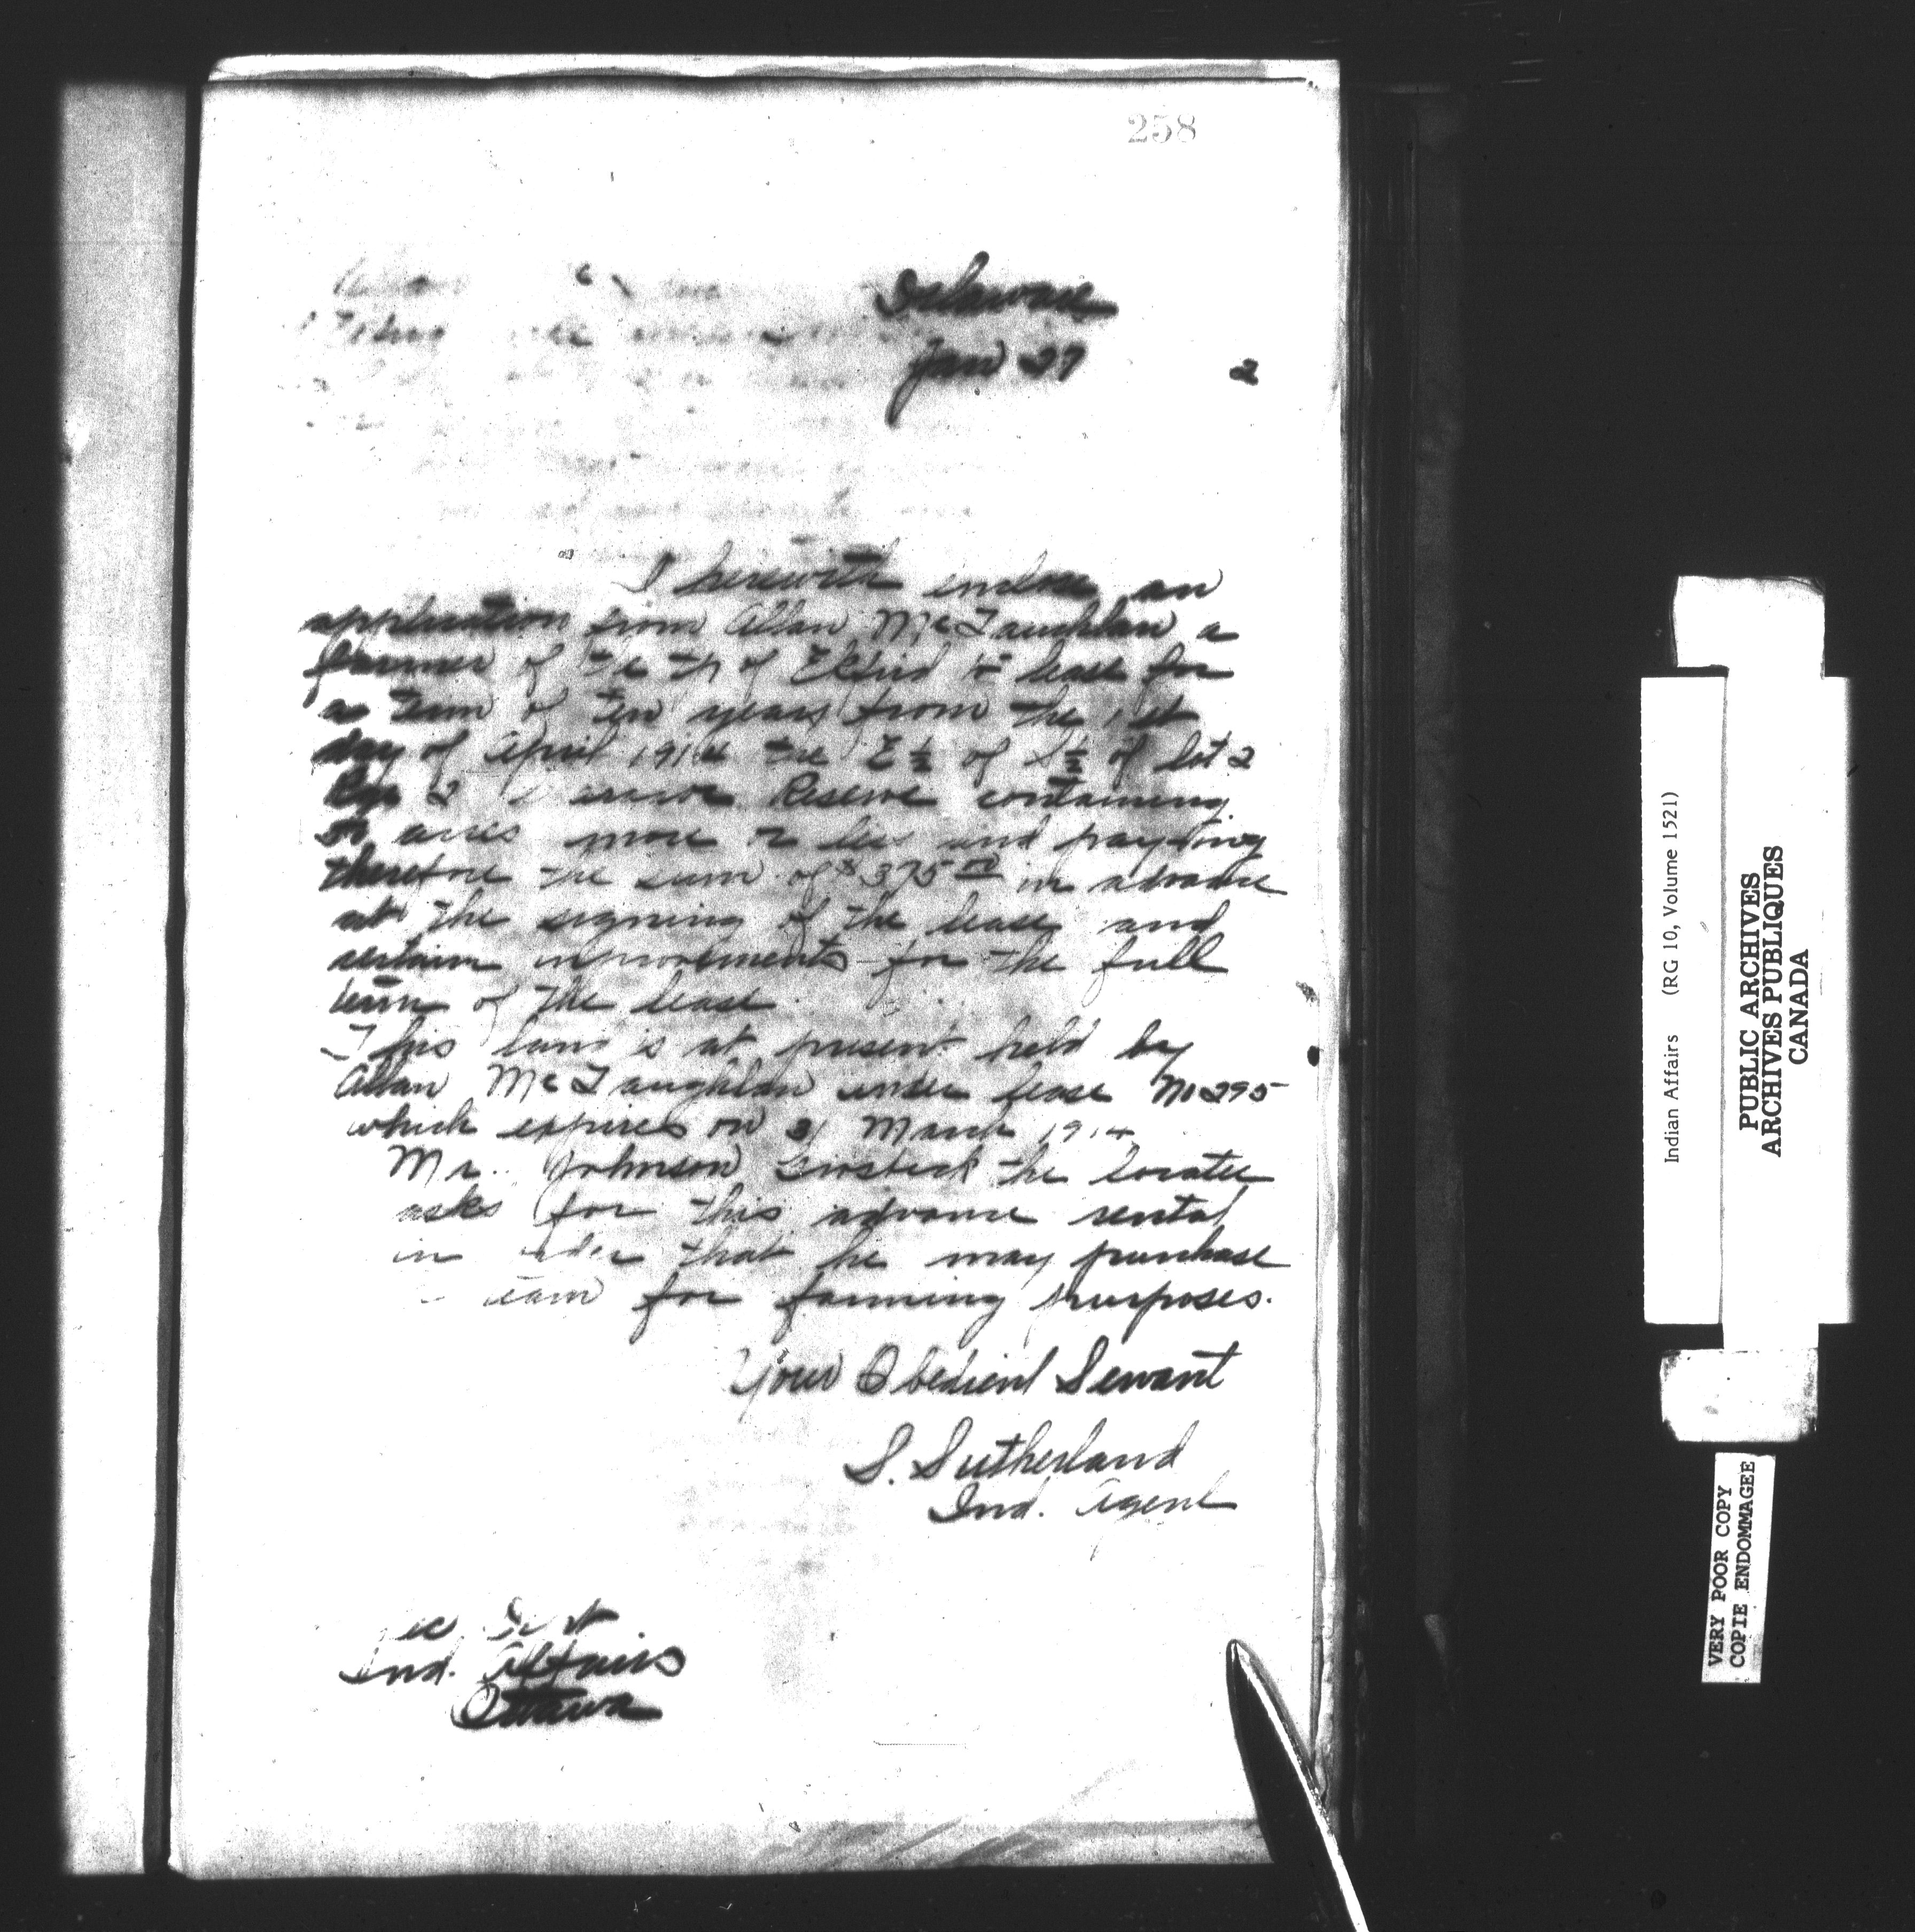 258
Delaware
Jan 27 2
I herewith enclose an
application from Allan McLaughlan a
farmer of the tp of Ekfrid to lease for
a term of ten years from the 1st
day of April 191 the E ½ of S ½ of lot 2
Rge 2 Reserve containing
50 acres more or less and paying
therefore the sum of $375 00 in advance
at the signing of the lease and
certain improvements for the full
term of the lease
This land is at present held by
Allan McLaughlan under lease No 295
which expires on 31 March 1914
Mr. Johnson the locatee
asks for this advance rental
in order that he may purchase
team for farming purposes.
Your Obedient Servant
S. Sutherland
Ind. Agent
Ind. Affairs
Ottawa
Indian Affairs (RG 10, Volume 1521)
PUBLIC ARCHIVES
ARCHIVES PUBLIQUES
CANADA
VERY POOR COPY
COPIE ENDOMMAGEE